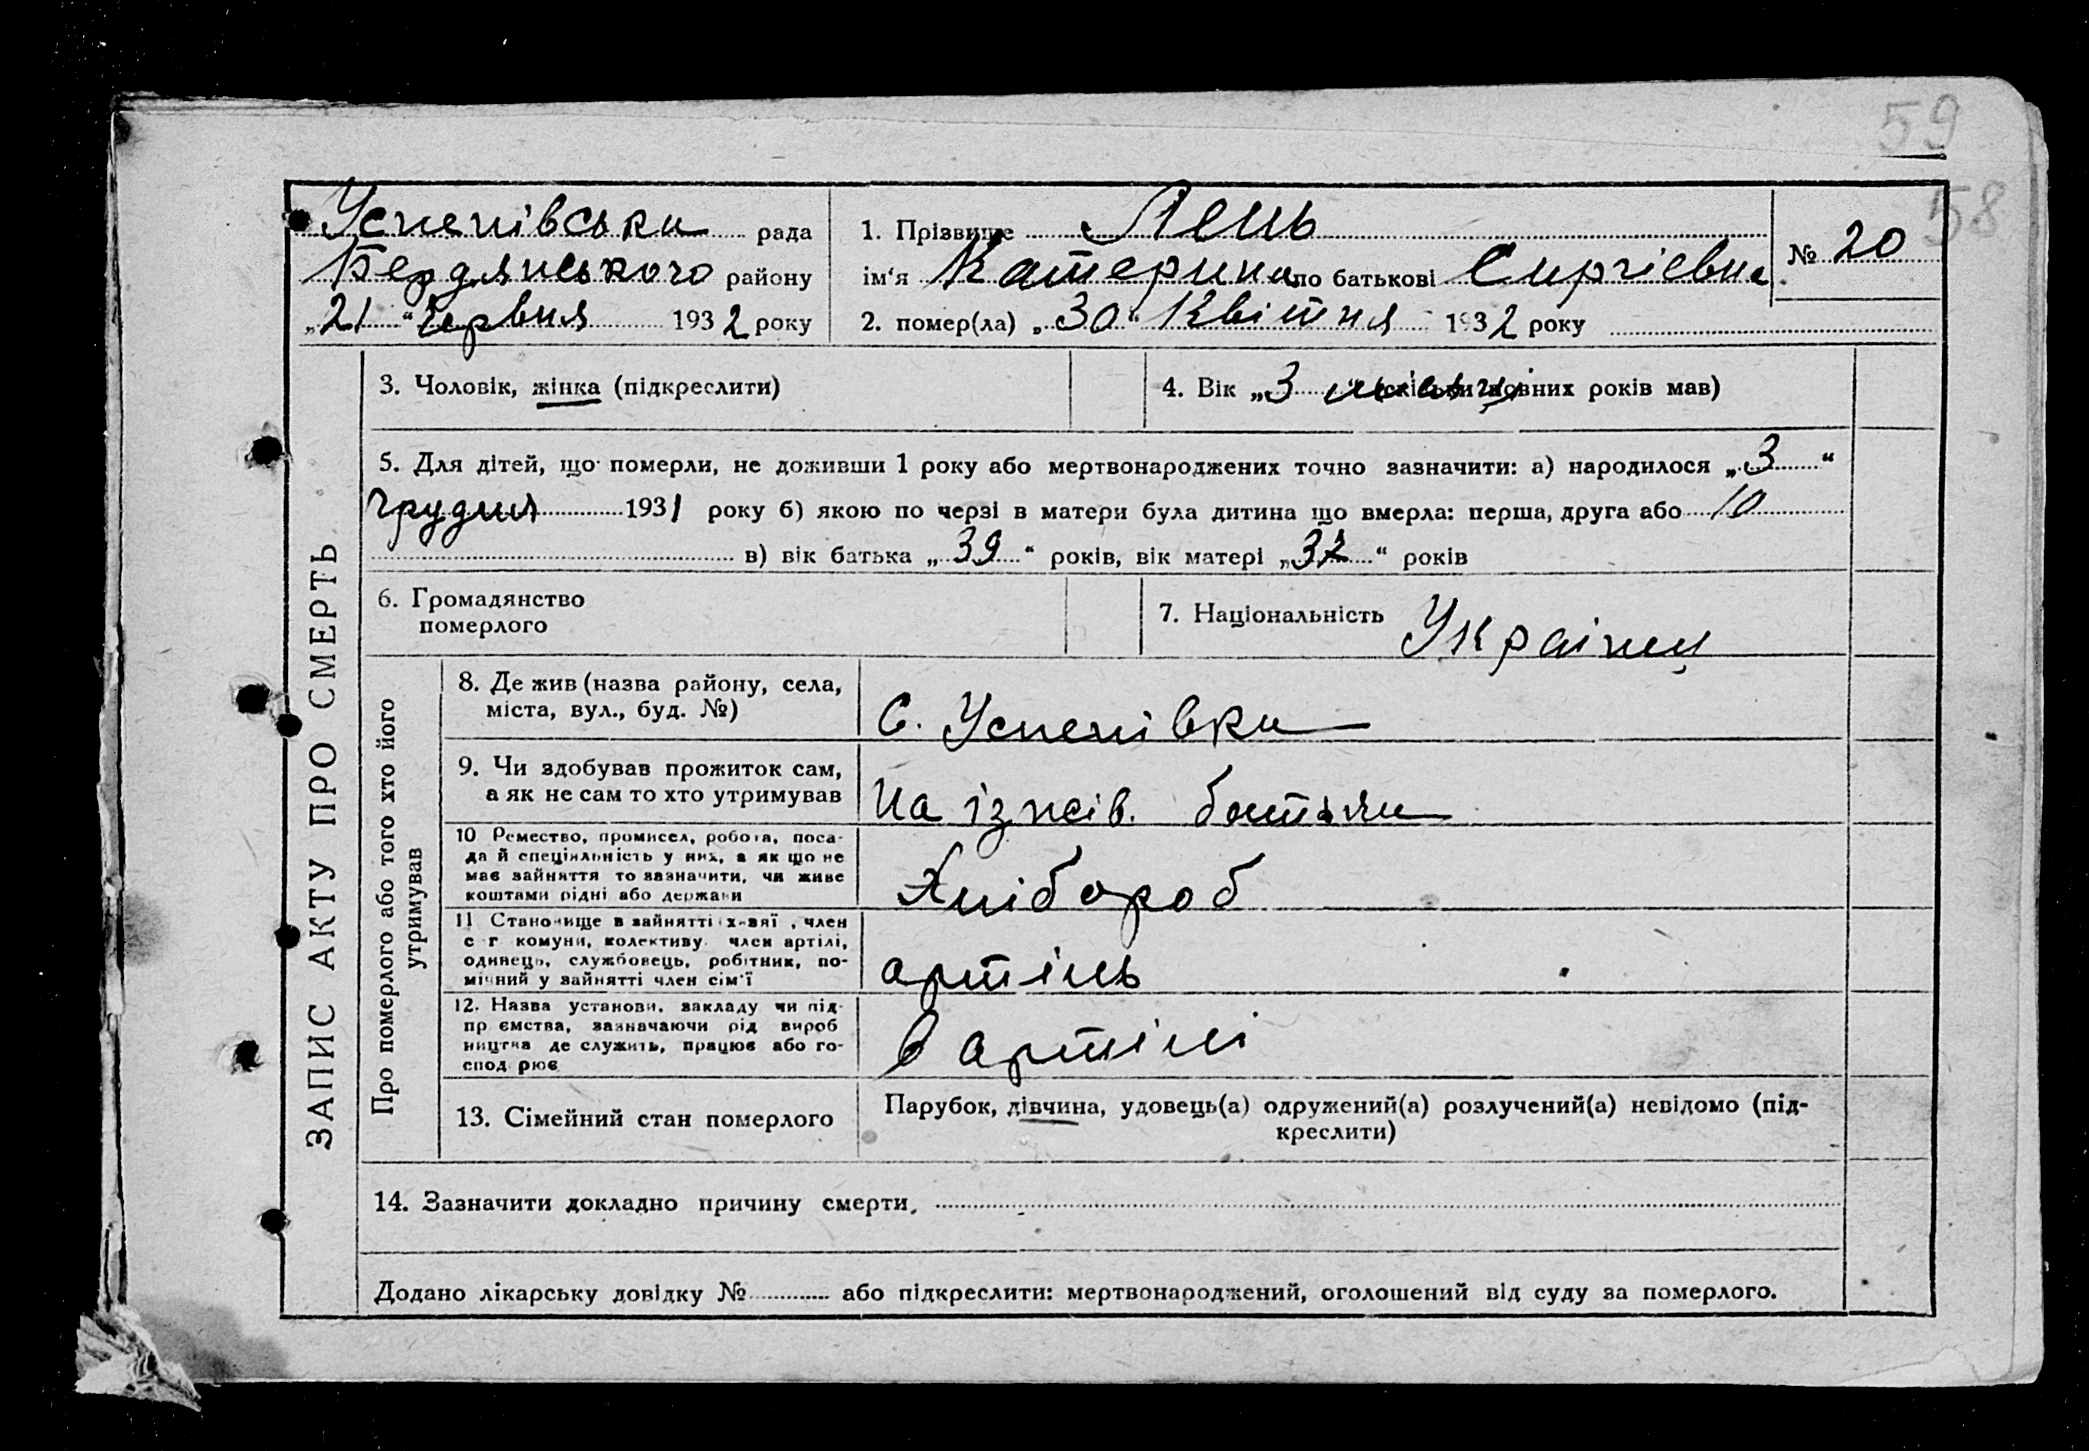 59
58
Успенівська рада
Бердянського району
„21“ Червня 1932 року
1. Прізвище Лень
ім‘я Катерина по батькові Сиргієвна
№ 20
2. помер(ла) „30“ Квітня 1932 року
3. Чоловік, жінка (підкреслити)
4. Вік „3 місяця“ (скільки повних років мав)
5. Для дітей, що померли, не доживши 1 року або мертвонароджених точно зазначити: а) народилося „3“
грудня 1931 року б) якою по черзі в матери була дитина що вмерла: перша, друга або 10
в) вік батька „39“ років, вік матері „37“ років
6. Громадянство
померлого
7. Національність Українц
ЗАПИС АКТУ ПРО СМЕРТЬ
Про померлого або того хто його
утримував
8. Де жив (назва району, села,
міста, вул., буд. №)
С. Успенівка
9. Чи здобував прожиток сам,
а як не сам то хто утримував
На іжнів. батька
10 Ремество, промисел, робота, поса-
да й спеціяльність у них, а як що не
має зайняття то зазначити, чи живе
коштами рідні або держави
Хлібороб
11 Становище в зайнятті , член
с г комуни, колективу член артілі,
одинець, службовець, робітник, по-
мічний у зайнятті член сім‘ї
артіль
12. Назва установи, закладу чи під-
пр ємства, зазначаючи рід вироб
ництва де служить, працює або го-
спод рює
в артілі
13. Сімейний стан померлого
Парубок, дівчина, удовець(а) одружений(а) розлучений(а) невідомо (під-
креслити)
14. Зазначити докладно причину смерти,
Додано лікарську довідку № або підкреслити: мертвонароджений, оголошений від суду за померлого.